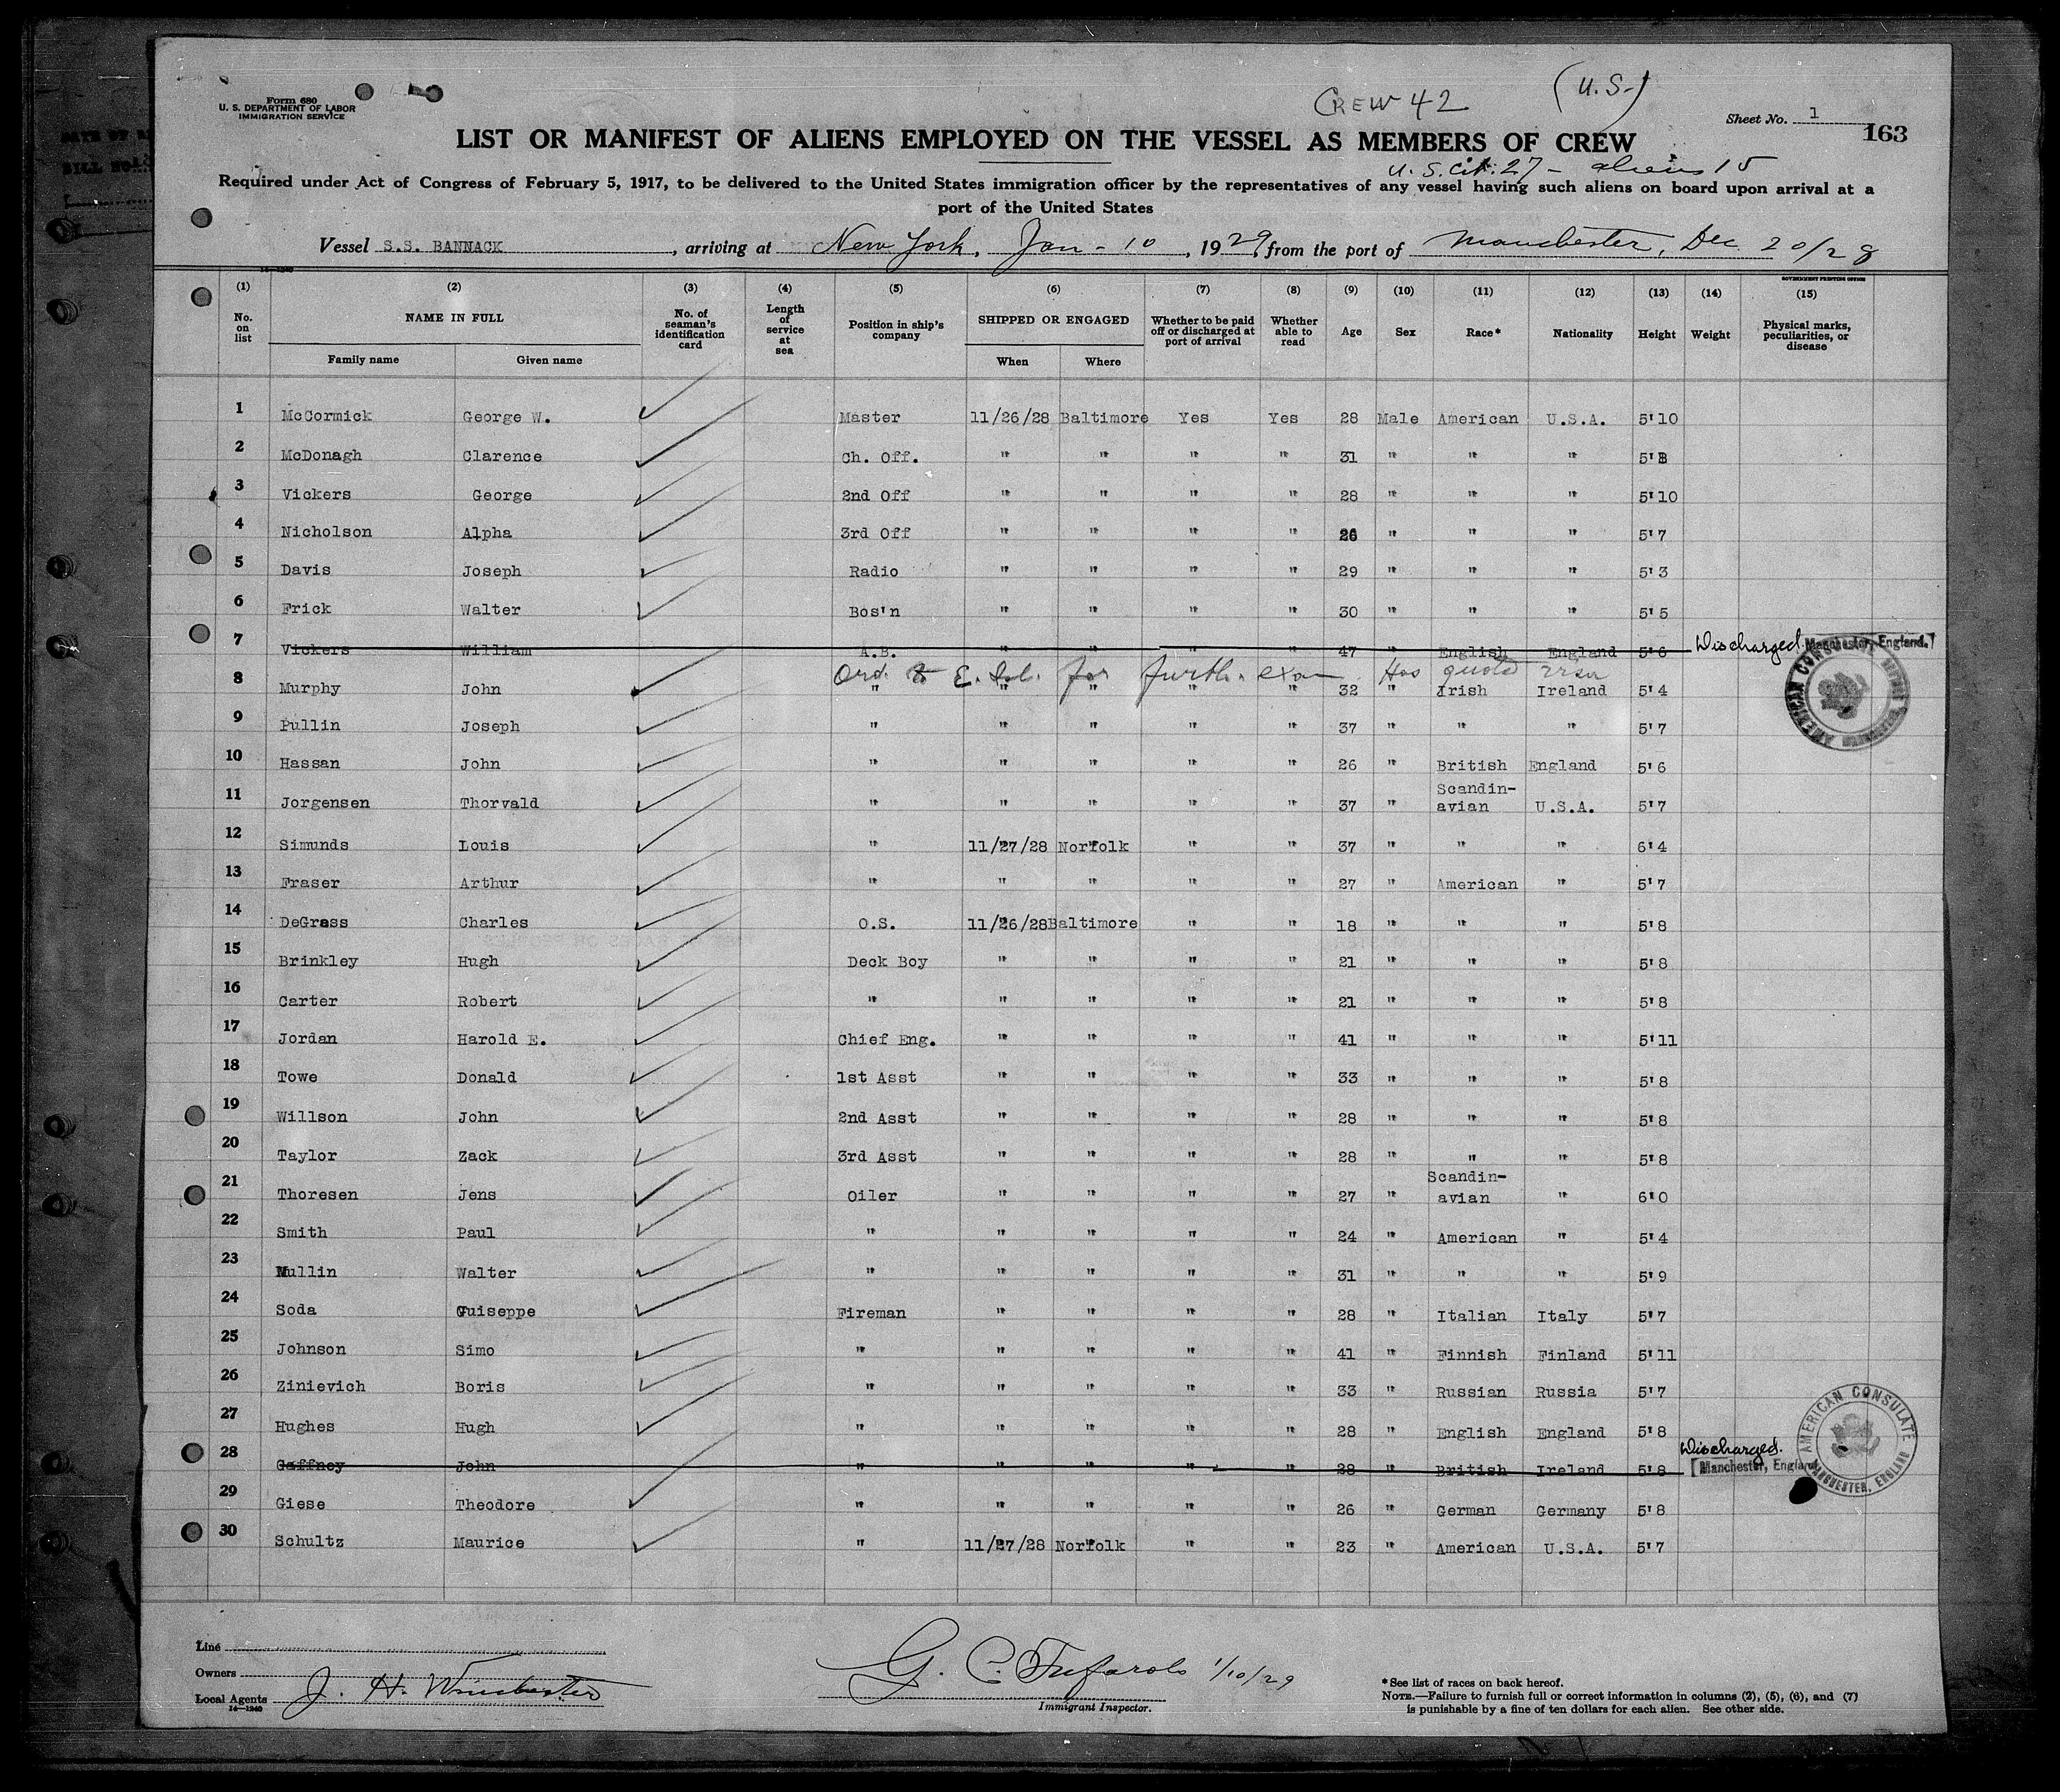 Form 680
U. S. DEPARTMENT OF LABOR
IMMIGRATION SERVICE
CREW 42
(U. S.)
Sheet No. 1
163
LIST OR MANIFEST OF ALIENS EMPLOYED ON THE VESSEL AS MEMBERS OF CREW
U. S. cit: 27 - aliens 15
Required under Act of Congress of February 5, 1917, to be delivered to the United States immigration officer by the representatives of any vessel having such aliens on board upon arrival at a
port of the United States
Vessel S.S. BANNACK, arriving at New York, Jan - 10, 1929, from the port of Manchester, Dec 20/28
14—1240
GOVERNMENT PRINTING OFFICE
(1) (2) (3) (4) (5) (6) (7) (8) (9) (10) (11) (12) (13) (14) (15)
No. on list NAME IN FULL No. of seaman's identification card Length of service at sea Position in ship's company SHIPPED OR ENGAGED Whether to be paid off or discharged at port of arrival Whether able to read Age Sex Race* Nationality Height Weight Physical marks, peculiarities, or disease
Family name Given name When Where
1 McCormick George W. Master 11/26/28 Baltimore Yes Yes 28 Male American U.S.A. 5'10
2 McDonagh Clarence Ch. Off. " " " " 31 " " "
3 Vickers George 2nd Off " " " " 28 " " " 5'10
4 Nicholson Alpha 3rd Off " " " " 26 " " " 5'7
5 Davis Joseph Radio " " " " 29 " " " 5'3
6 Frick Walter Bos'n " " " " 30 " " " 5'5
7 Vickers William A.B. " " " " 47 " English England 5'6 Discharged. Manchester, England.
Ord. to E. Isl. for furth. exam Has quota
8 Murphy John " " " " " 32 " Irish Ireland 5'4
AMERICAN CONSULATE
9 Pullin Joseph " " " " " 37 " " " 5'7
10 Hassan John " " " " " 26 " British England 5'6
11 Jorgensen Thorvald " " " " " 37 " Scandin-avian U.S.A. 5'7
12 Simunds Louis " 11/27/28 Norfolk " " 37 " " " 6'4
13 Fraser Arthur " " " " " 27 " American " 5'7
14 DeGrass Charles O.S. 11/26/28 Baltimore " " 18 " " " 5'8
15 Brinkley Hugh Deck Boy " " " " 21 " " " 5'8
16 Carter Robert " " " " " 21 " " " 5'8
17 Jordan Harold E. Chief Eng. " " " " 41 " " " 5'11
18 Towe Donald 1st Asst " " " " 33 " " " 5'8
19 Willson John 2nd Asst " " " " 28 " " " 5'8
20 Taylor Zack 3rd Asst " " " " 28 " " " 5'8
21 Thoresen Jens Oiler " " " " 27 " Scandin-avian " 6'0
22 Smith Paul " " " " " 24 " American " 5'4
23 Mullin Walter " " " " " 31 " " " 5'9
24 Soda Guiseppe Fireman " " " " 28 " Italian Italy 5'7
25 Johnson Simo " " " " " 41 " Finnish Finland 5'11
26 Zinievich Boris " " " " " 33 " Russian Russia 5'7
27 Hughes Hugh " " " " " 28 " English England 5'8
28 Gaffney John " " " " " 28 " British Ireland 5'8 Discharged. Manchester, England
AMERICAN CONSULATE MANCHESTER, ENGLAND
29 Giese Theodore " " " " " 26 " German Germany 5'8
30 Schultz Maurice " 11/27/28 Norfolk " " 23 " American U.S.A. 5'7
Line
Owners
Local Agents J. H. Winchester
14—1240
G. C. 1/10/29
Immigrant Inspector.
*See list of races on back hereof.
NOTE.—Failure to furnish full or correct information in columns (2), (5), (6), and (7)
is punishable by a fine of ten dollars for each alien. See other side.